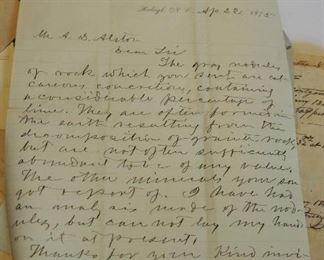 Raleigh N. C. Ap. 22, 1875
Mr. A. D. Alston
Dear Sir
The gray nodules
of rock which you sent are cal-
careous concretions, containing
a considerable percentage of
lime. They are often formed in
the earth resulting from the
decomposition of granite rock
but are not often sufficiently
abundant to be of any value.
The other minerals you
got report of. I have had
an analysis made of the nod-
ules, but can not lay my hand
on it at present.
Thanks for your kind invi-